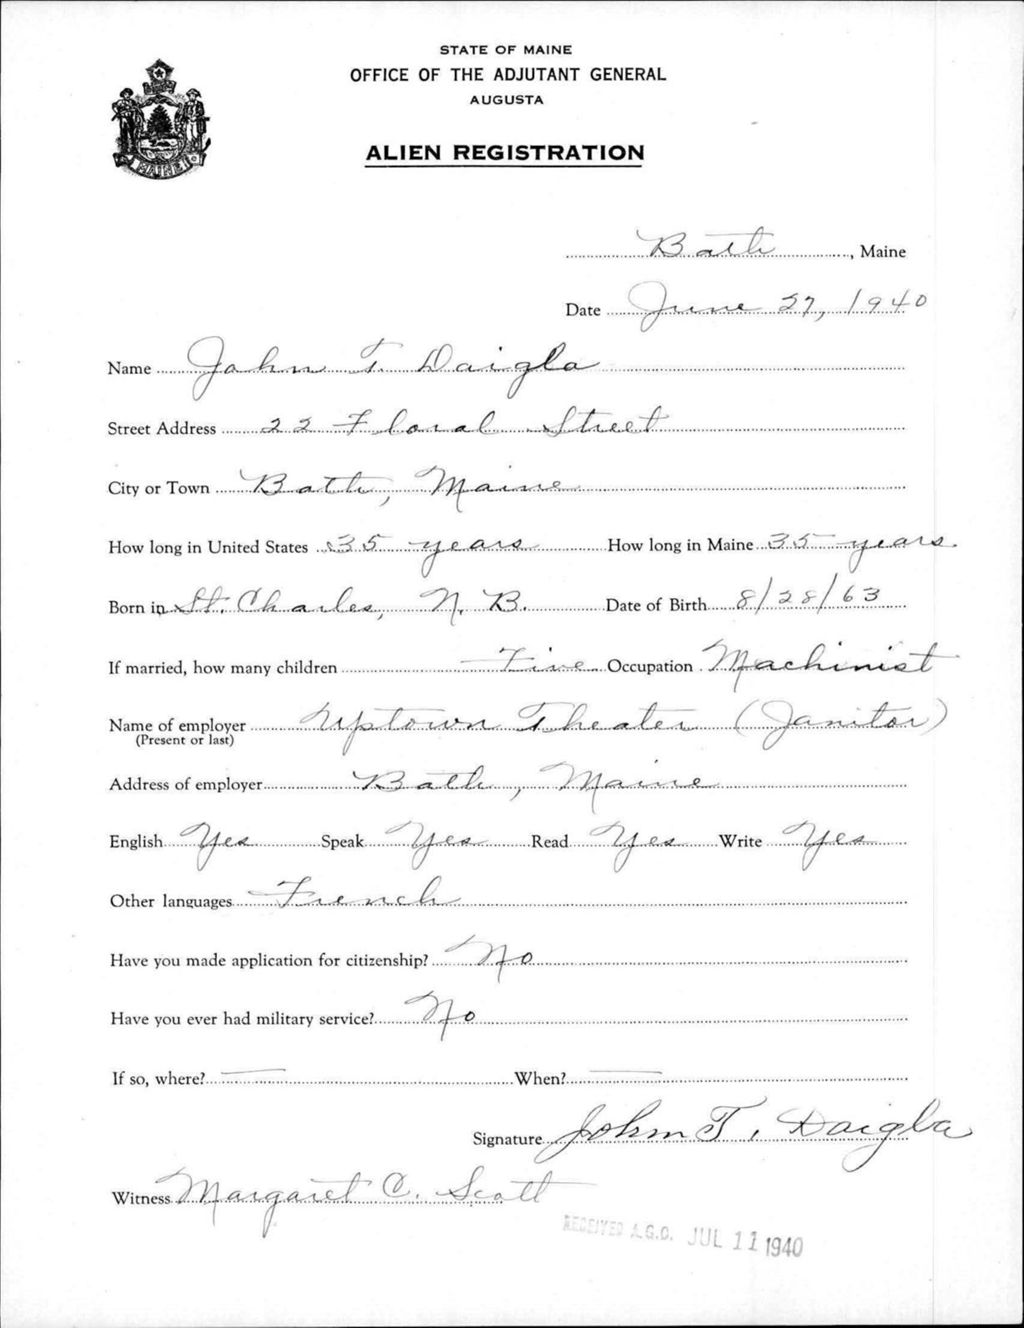 STATE OF MAINE
OFFICE OF THE ADJUTANT GENERAL
AUGUSTA
ALIEN REGISTRATION
MAINE
Bath, Maine
Date June 27, 1940
Name John T. Daigla
Street Address 22 Floral Street
City or Town Bath, Maine
How long in United States 35 years How long in Maine 35 years
Born in St. Charles, N. B. Date of Birth 8/28/63
If married, how many children Five Occupation Machinist
Name of employer Uptown Theater (Janitor)
(Present or last)
Address of employer Bath, Maine
English Yes Speak Yes Read Yes Write Yes
Other languages French
Have you made application for citizenship? No
Have you ever had military service? No
If so, where? — When? —
Signature John T. Daigla
Witness Margaret C. Scott
RECEIVED A.G.O. JUL 11 1940